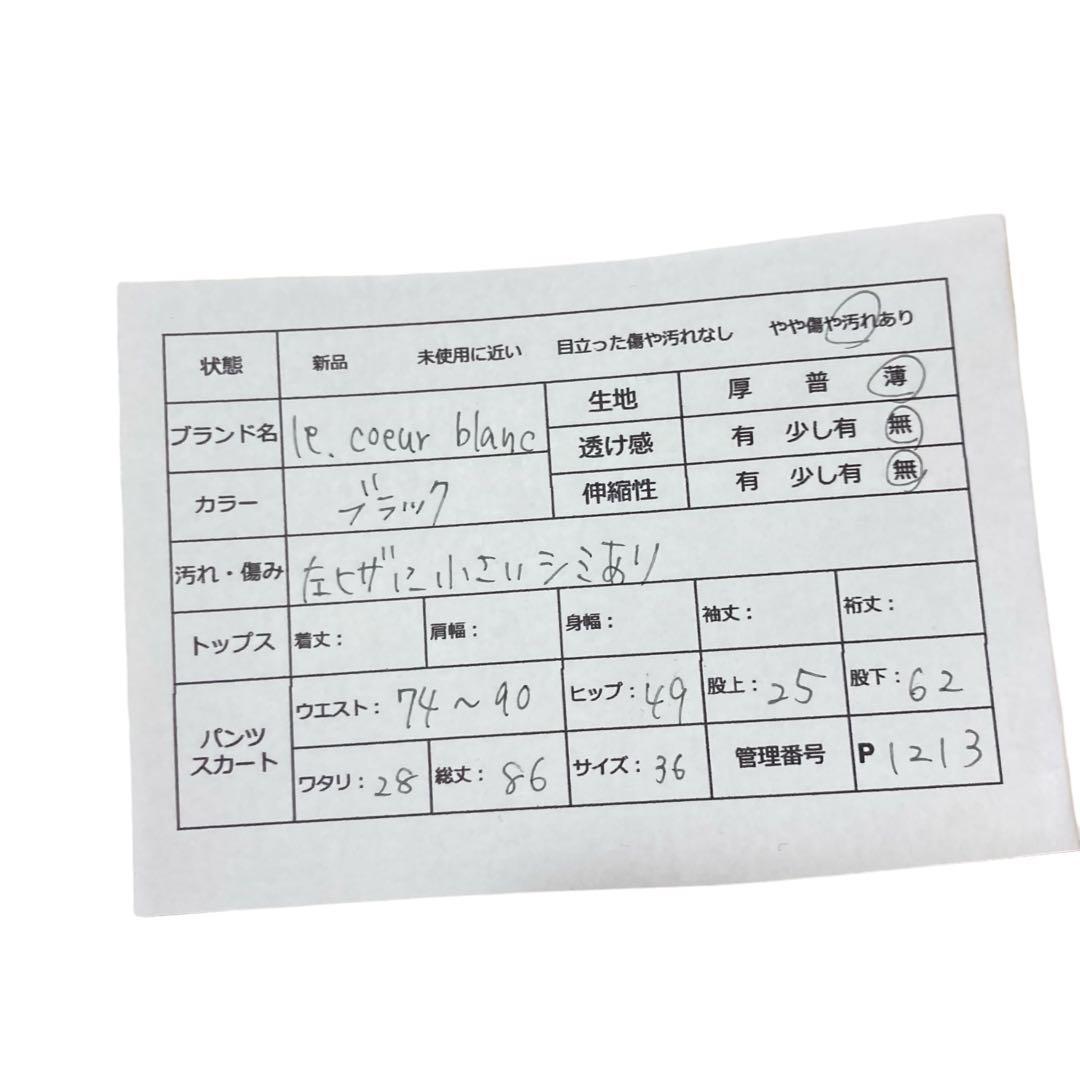 状態 新品 未使用に近い 目立った傷や汚れなし やや傷や汚れあり
ブランド名 le. coeur blanc 生地 厚 普 薄
透け感 有 少し有 無
カラー ブラック 伸縮性 有 少し有 無
汚れ・傷み 左ヒザに小さいシミあり
トップス 着丈： 肩幅： 身幅： 袖丈： 裄丈：
パンツ スカート ウエスト：74～90 ヒップ：49 股上：25 股下：62
ワタリ：28 総丈：86 サイズ：36 管理番号 P 1213